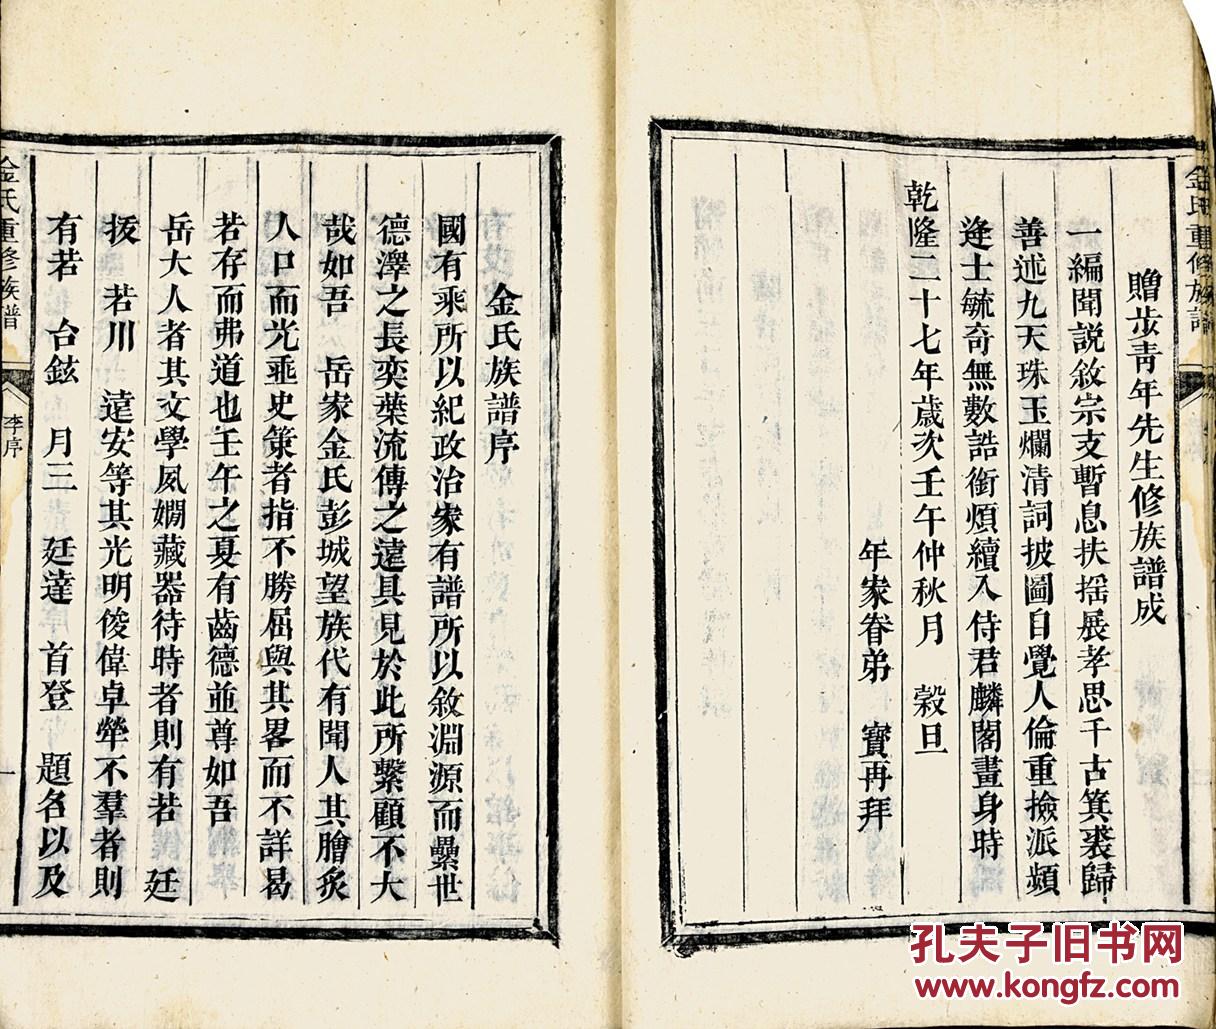 金氏重修族譜
贈步青年先生修族譜成
一編聞説敘宗支暫息扶揺展孝思千古箕裘歸
善述九天珠玉爛清詞披圖自覺人倫重撿派頻
逄士毓奇無數誥銜煩續入侍君麟閣畫身時
乾隆二十七年歲次壬午仲秋月　穀旦
年家眷弟　寶再拜
金氏族譜序
國有乘所以紀政治家有譜所以敘淵源而纍世
德澤之長奕葉流傳之遠具見於此所繫顧不大
哉如吾　岳家金氏彭城望族代有聞人其膾炙
人口而光乖史策者指不勝屈與其畧而不詳曷
若存而弗道也壬午之夏有齒德並尊如吾
岳大人者其文學夙嫺藏器待時者則有若　廷
拔　若川　遠安等其光明俊偉卓犖不羣者則
有若　台鉉　月三　廷達　首登　題名以及
金氏重修族譜
李序
一
孔夫子旧书网
www.kongfz.com